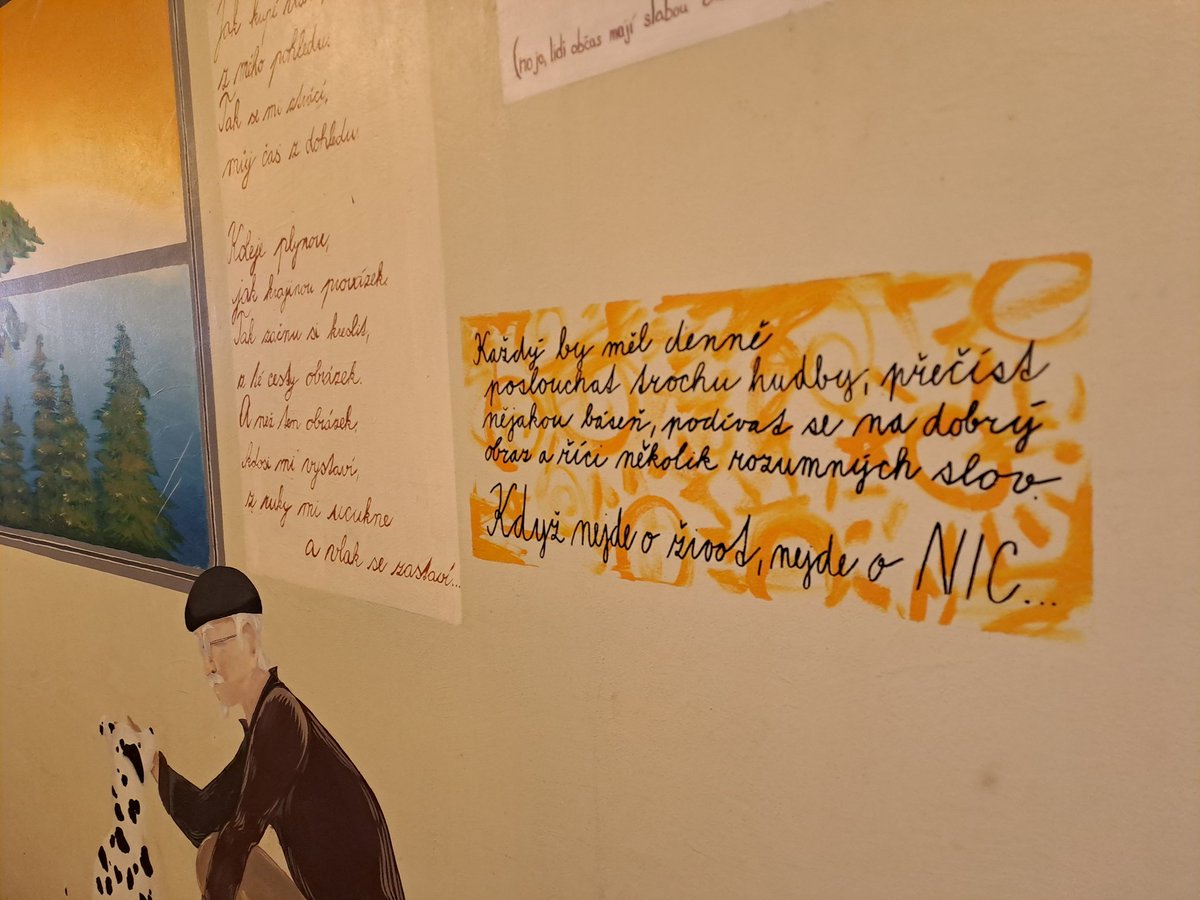 z mého pohledu.
Tak se mi ztrácí,
můj čas z dohledu
Koleje plynou,
jak krajinou provázek.
Tak začnu si kreslit,
z té cesty obrázek.
A než ten obrázek,
kdosi mi vystaví,
z ruky mi ucukne
a vlak se zastaví...
(no jo, lidi občas mají slabou
Každý by měl denně
poslouchat trochu hudby, přečíst
nějakou báseň, podívat se na dobrý
obraz a říci několik rozumných slov.
Když nejde o život, nejde o NIC...